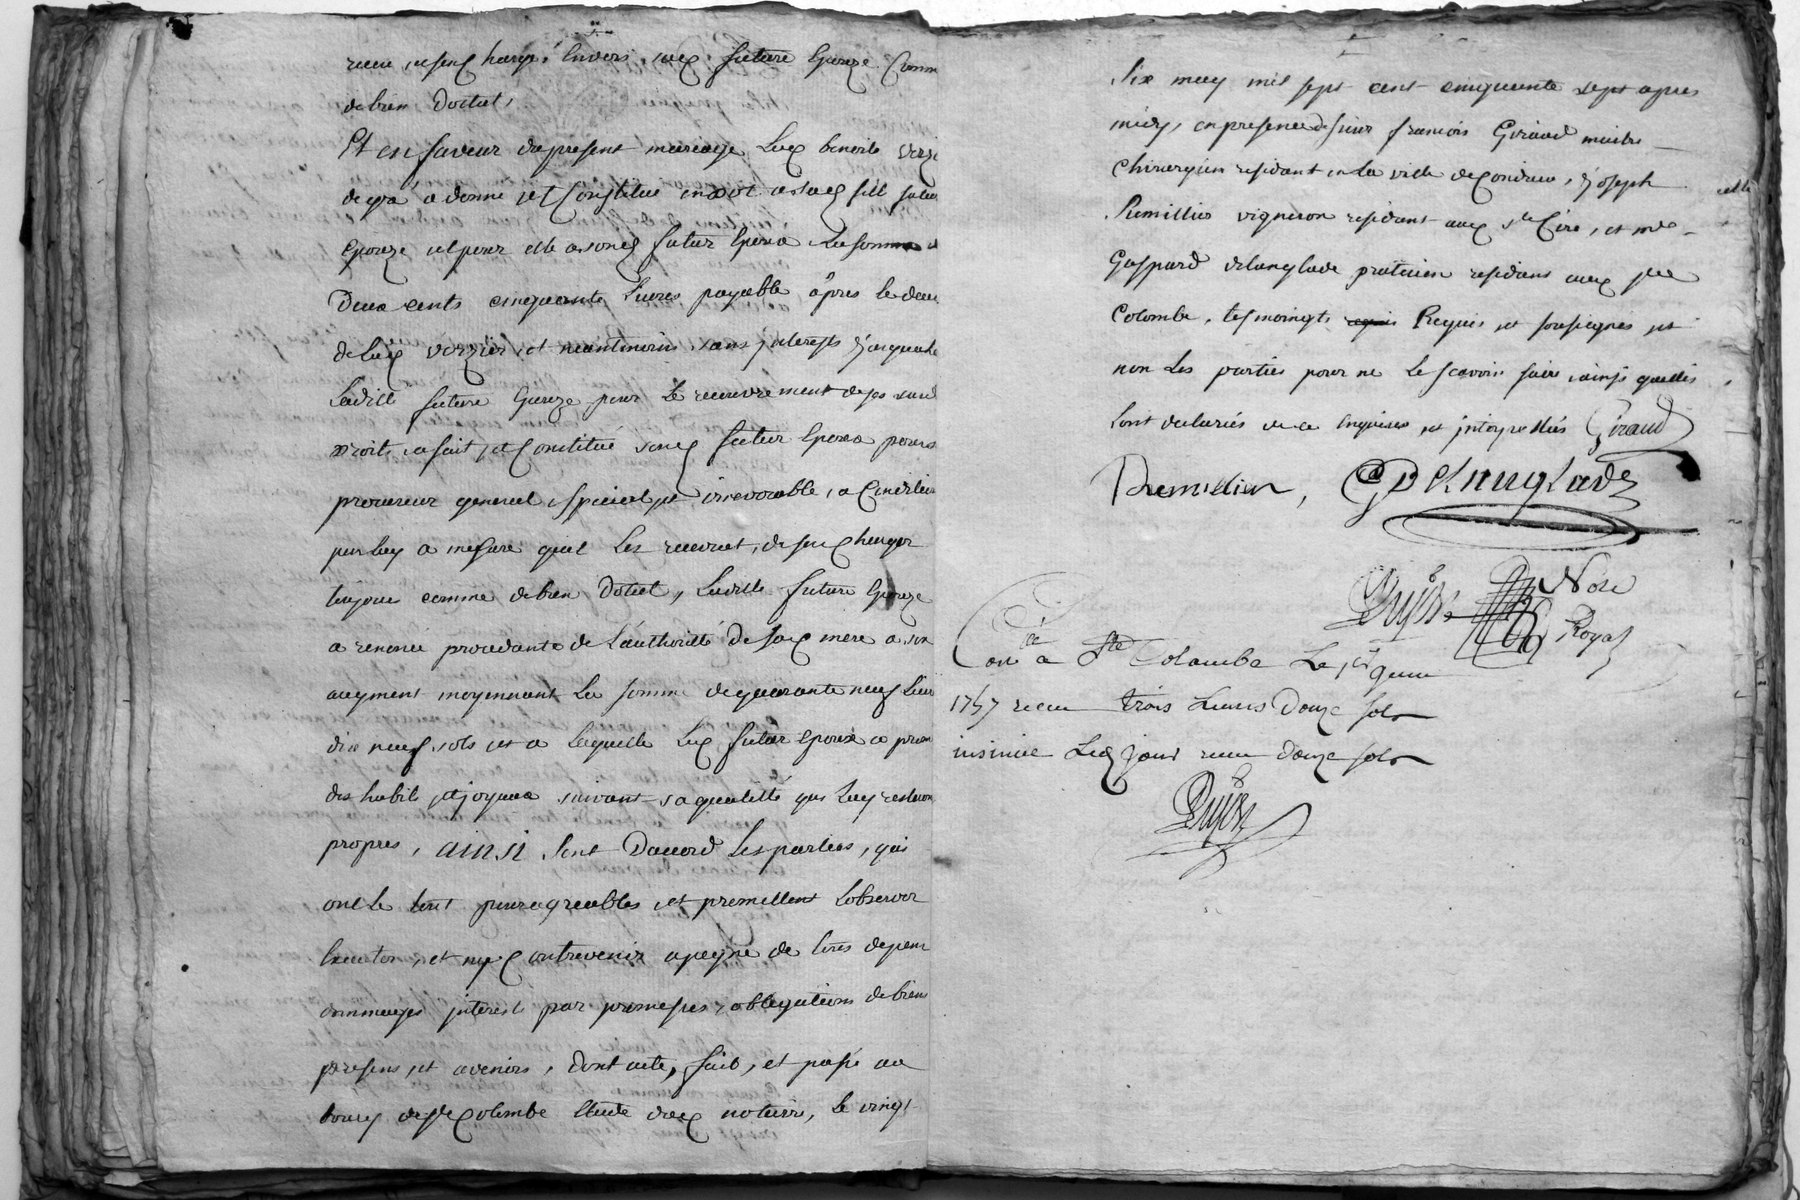 receu, et sen charge envers lad. future Epouze Comm
de bien Dottal,
Et en faveur du present mariage Led. benoit verzi
de gré a donné et Constitué en dot a sad. fille future
Epouze et pour elle a sond. futur Epoux La somme d
Deux cents cinquante Livres payable âpres le deces
dud. verzier, et neantmoins sans jnterests jusques la
Laditte future Epouze pour Le recouvrement de ses susd
droits, a fait, et Constitué sond. futur Epoux pour s
procureur general special et irrevocable, a Condition
par luy a mesure quil Les recevrat, de sen charger
toujour comme de bien Dottal, Laditte future Epouze
a renoncé procedante de L'authorité De sad. mere a son
augment moyennant La somme de quarante neuf Livres
dix neuf sols et a laquelle Led. futur Epoux a promi
des habits et joyaux suivant sa qualitté qui Luy resteron
propres, ainsi sont Daccord Les parties, qui
ont le tout pour agreables et promettent Lobserver
Executer, et ny Contrevenir a peyne de tous depens
dommages jnterests par promesses, obligations de biens
presens et avenirs, Dont acte, fait, et passé au
bourg de Ste Colombe Etude dud. notaire, le vingt
six may mil sept cent cinquante sept apres
midy, en presence de sieur francois Giraud maitre
chirurgien residant en La ville de Condrieu, joseph
Remillier vigneron residant aud. St Cire, et me
Gaspard delanglade praticien residans aud. Ste
Colombe, tesmoingts Requis et soussignés et
non Les parties pour ne Le scavoir faire ainsi quelles
Lont declarées de ce enquises et jnterpellées Giraud
Remillier, G Delanglade
Dujon Nore
Royal
Con.é a Ste Colombe Le 1er juin
1757 receu trois Livres Douze sols
insinué Led. jour receu douze sols
Dujon